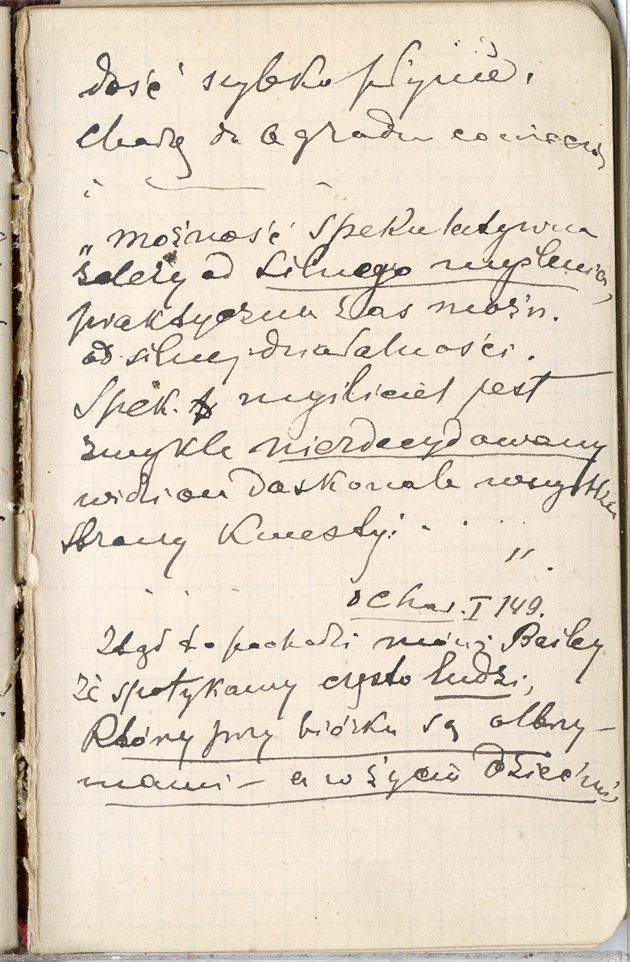 dość szybko płynie.
Chodzę do Ogrodu co wieczór
„możność spekulatywna
zależy od silnego myślenia,
praktyczna zaś możn.
od silnej działalności.
Spek. myśliciel jest
zwykle niezdecydowany
widząc doskonale wszystkie
strony kwestyi . . . "
o Char. I 149.
Ztąd to pochodzi mówi Bailey
że spotykamy często ludzi,
którzy przy biórku są olbrzy-
mami – a w życiu dziećmi.